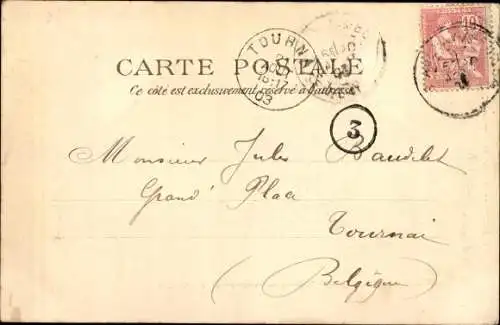 10
TOURNAI
16-17
03
CARTE POSTALE
Ce côté est exclusivement réservé à l'adresse
3
Monsieur Jules Baudelet
Grand' Place
Tournai
(Belgique)